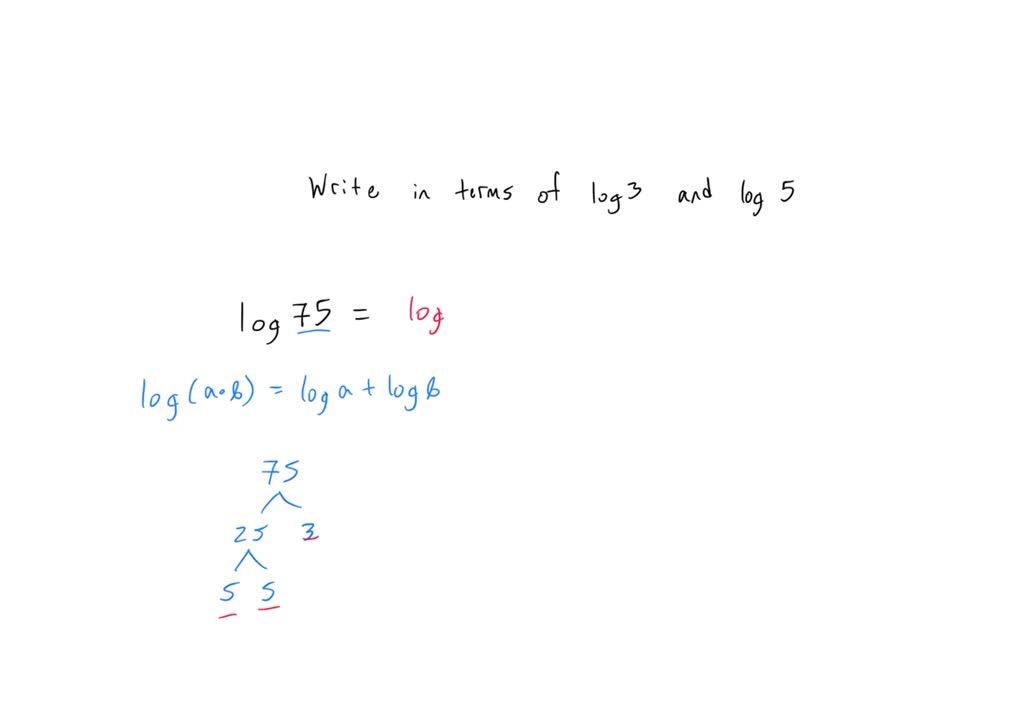 Write in terms of log 3 and log 5
log 75 = log
log(a·b) = log a + log b
75
25 3
5 5